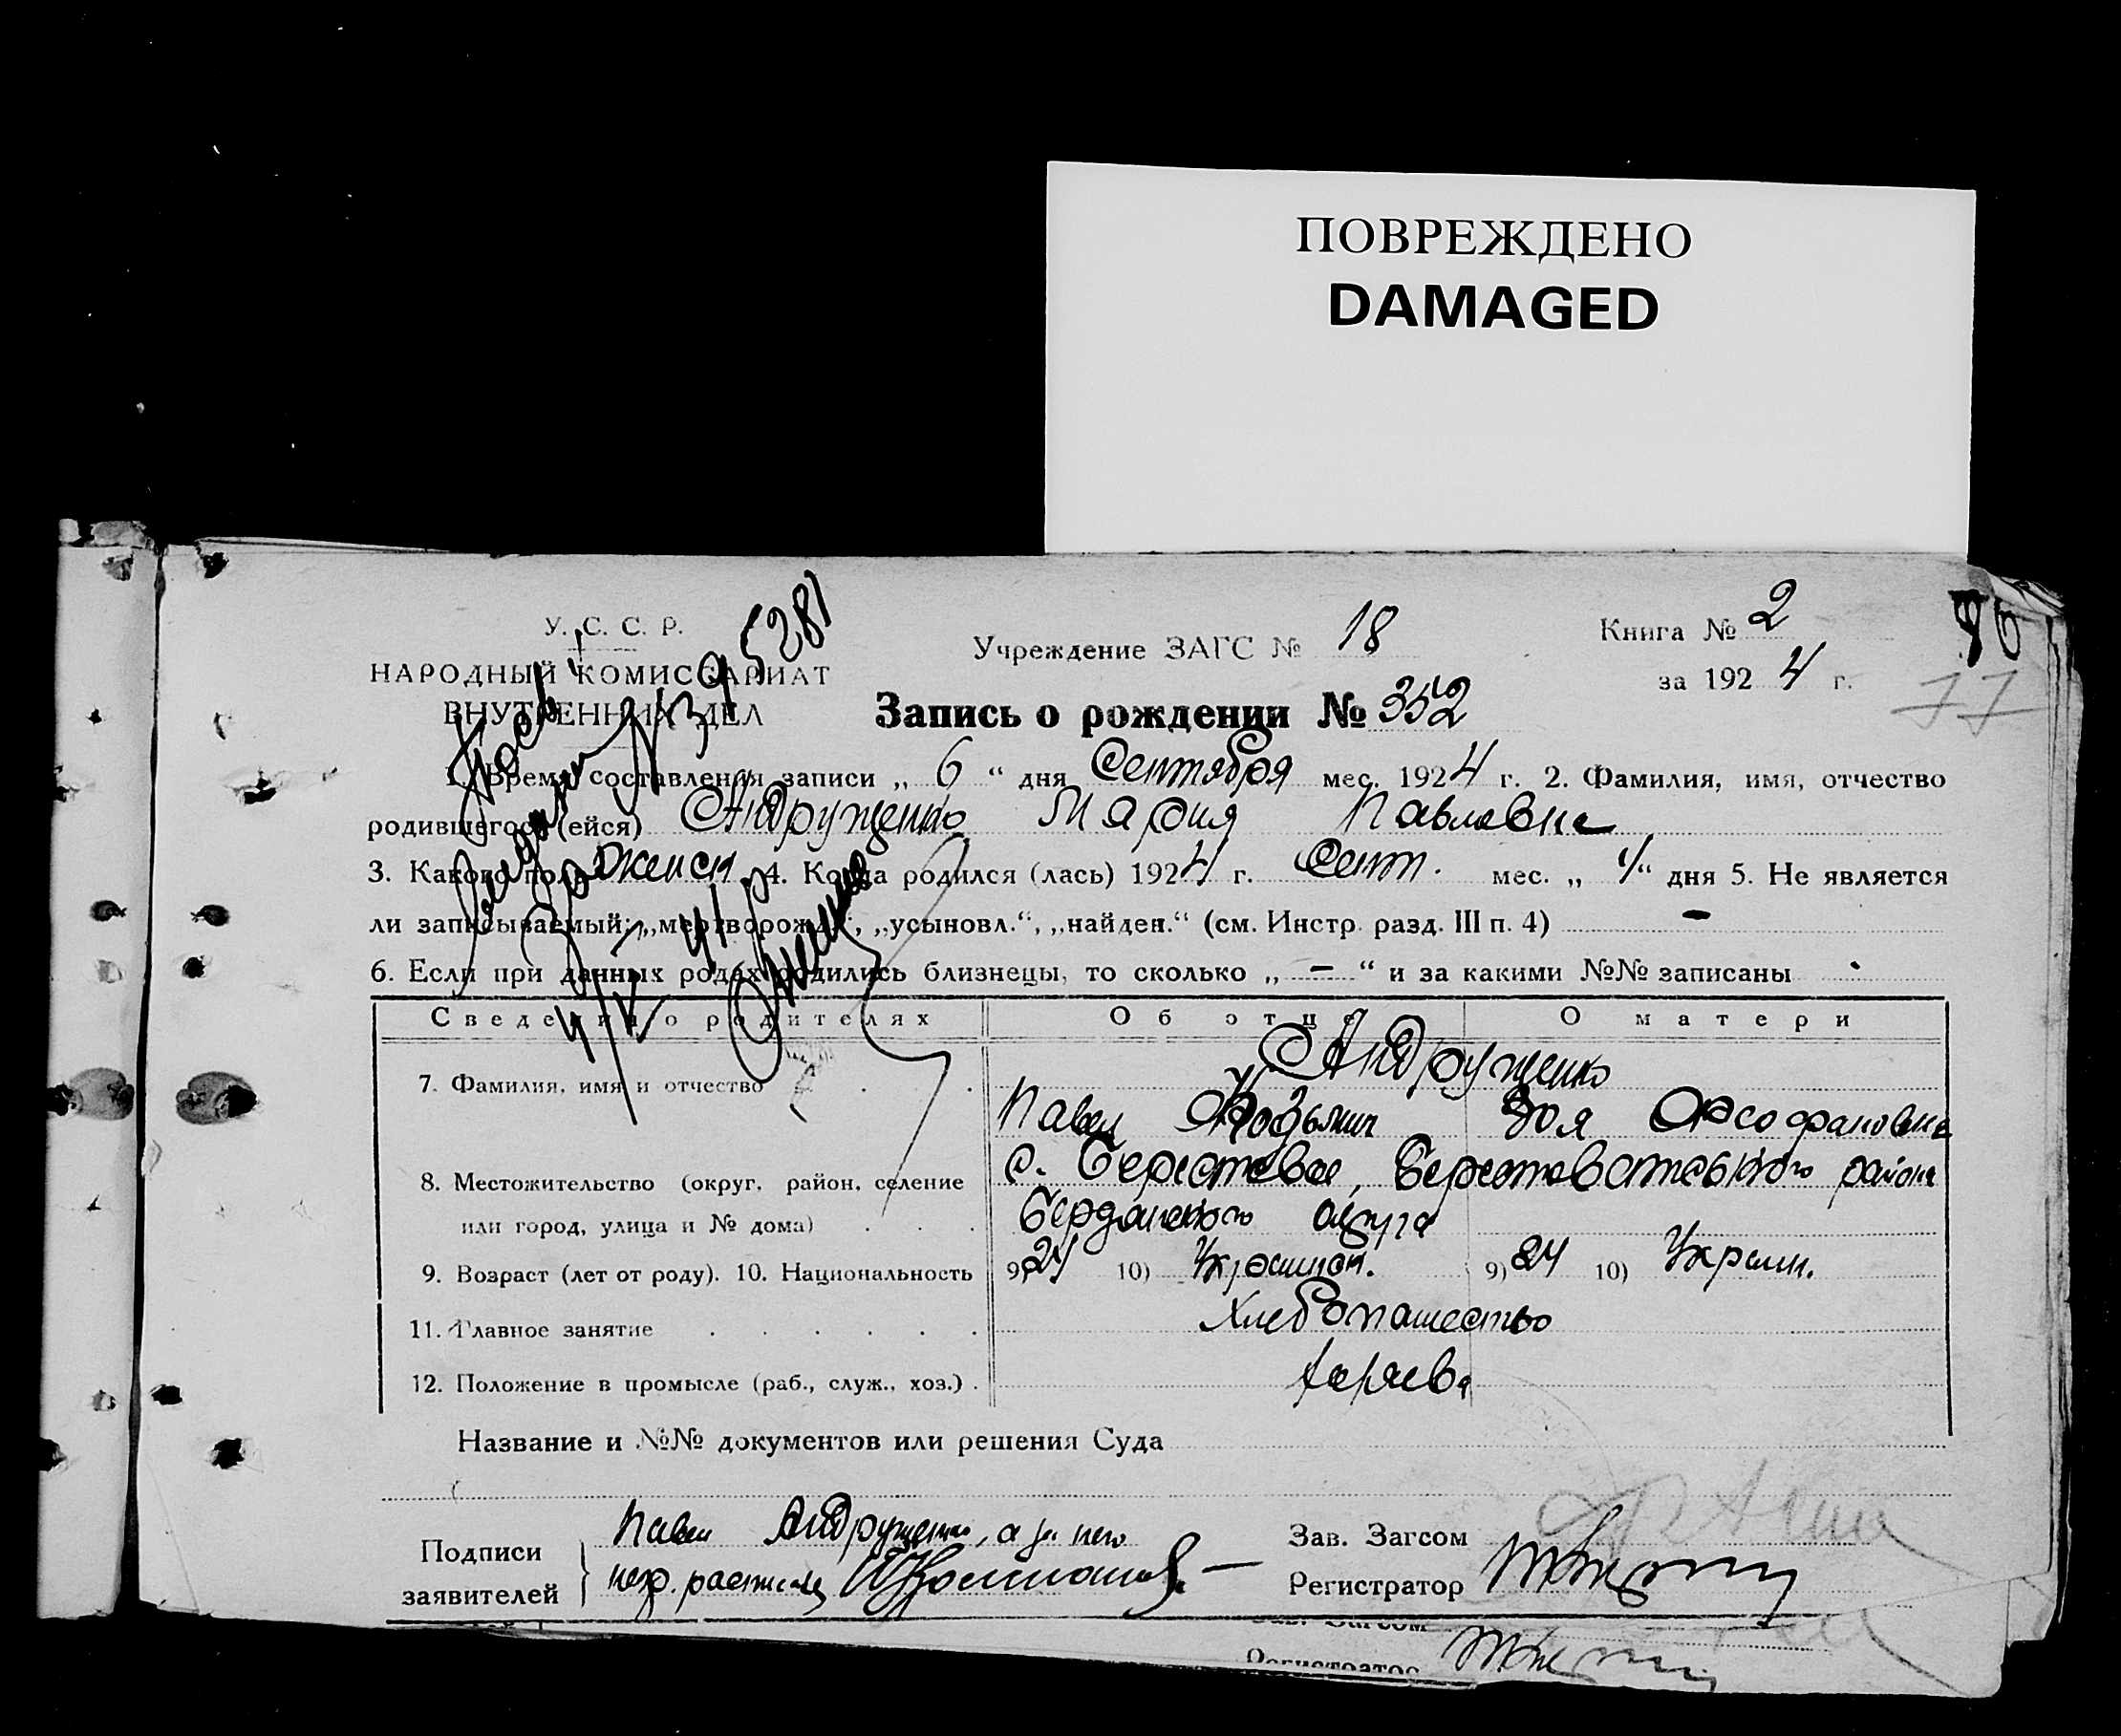 ПОВРЕЖДЕНО
DAMAGED
У. С. С. Р.
НАРОДНЫЙ КОМИССАРИАТ
ВНУТРЕННИХ ДЕЛ
№ 395281
Учреждение ЗАГС № 18
Книга № 2
за 1924 г.
77
Запись о рождении № 352
1. Время составления записи „ 6 “ дня Сентября мес. 1924 г. 2. Фамилия, имя, отчество
родившегося (ейся) Андрущенко Мария Павловна
3. Какого пола женск. 4. Когда родился (лась) 1924 г. Сент. мес. „ 4 “ дня 5. Не является
ли записываемый: „мертворожд.“, „усыновл.“, „найден.“ (см. Инстр. разд. III п. 4) –
6. Если при данных родах родились близнецы, то сколько „ – “ и за какими №№ записаны
Сведения о родителях Об отце О матери
Андрущенко
7. Фамилия, имя и отчество
Павел Козьмич Зоя
с. Берестовое, Берестоватского района
8. Местожительство (округ, район, селение
или город, улица и № дома)
Бердянского округа
9. Возраст (лет от роду). 10. Национальность 9) 24 10) Украинск. 9) 24 10) Украин.
11. Главное занятие Хлебопашество
12. Положение в промысле (раб., служ., хоз.) хозяева
Название и №№ документов или решения Суда
Подписи
заявителей
Павел Андрущенко, а за него
негр. расписался
Зав. Загсом
Регистратор
Зав. Загсом
Регистратор